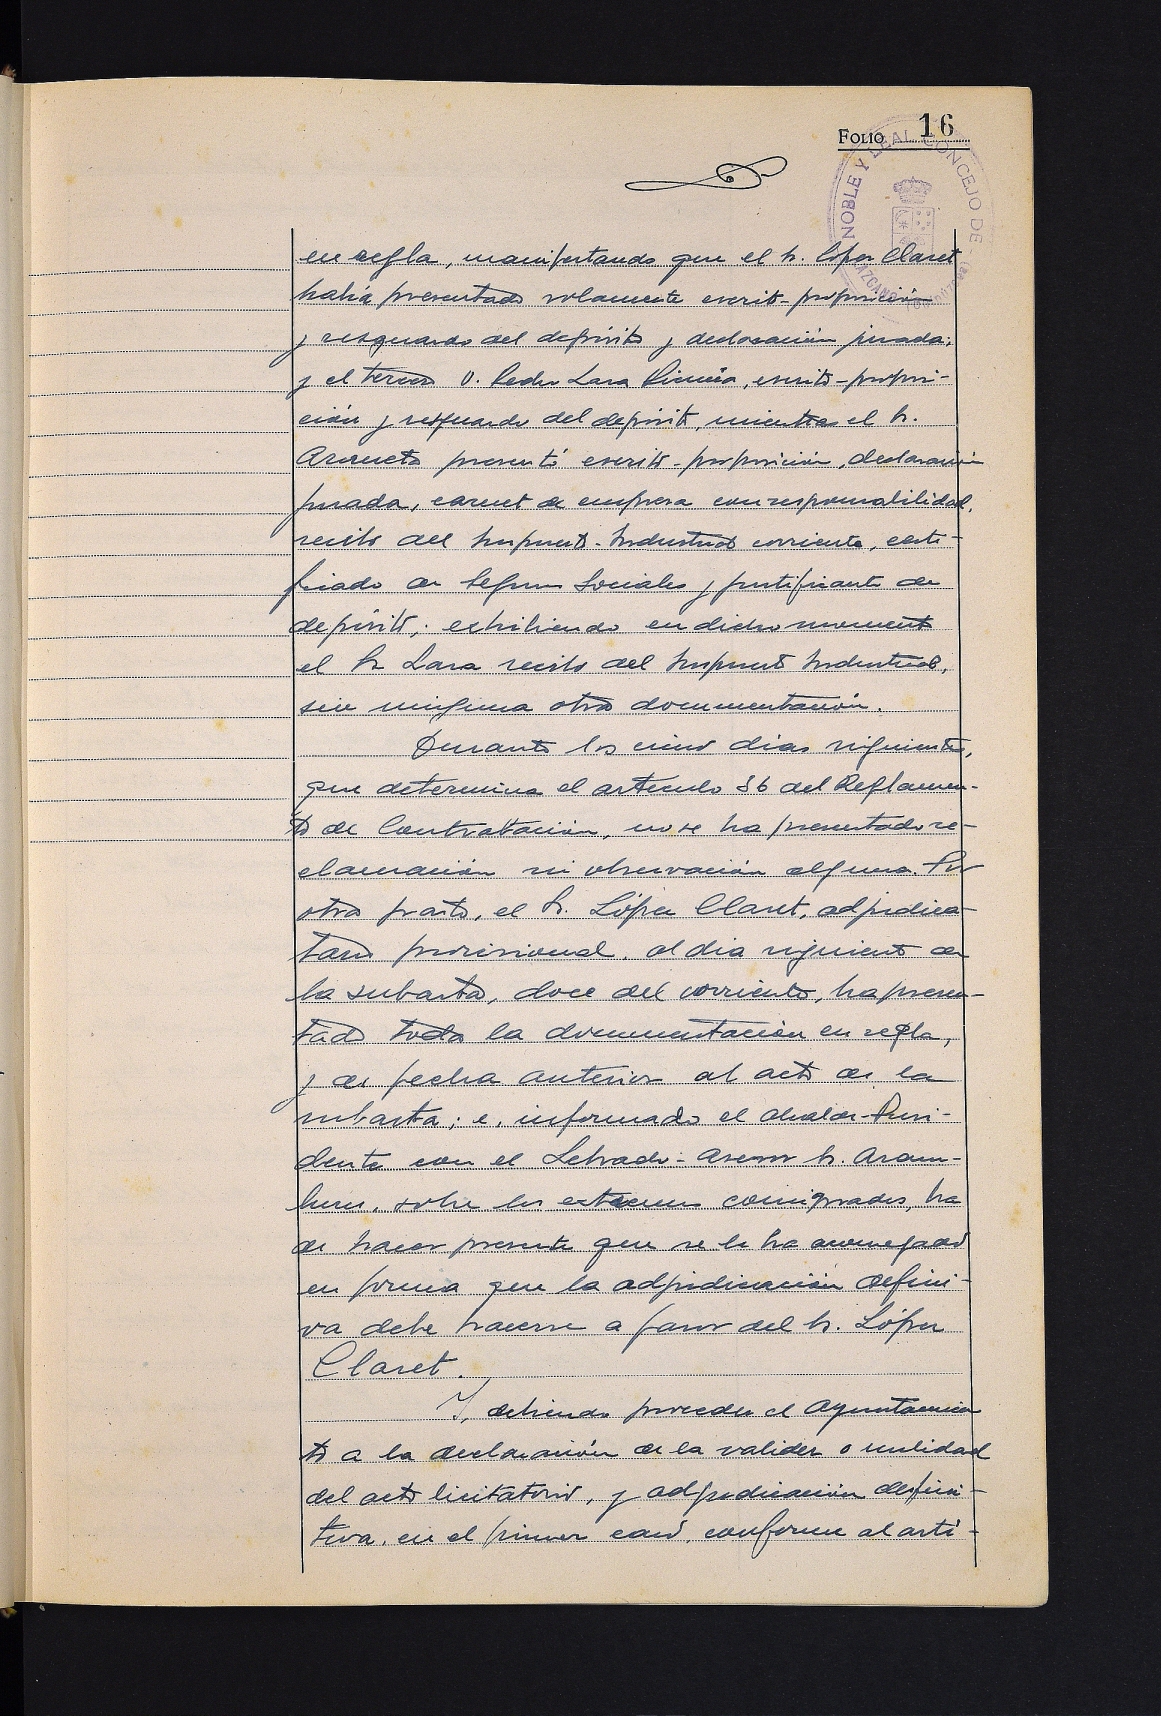 FOLIO 16
NOBLE Y LEAL CONCEJO DE LAZCANO
en regla, manifestando que el Sr. López Claret
había presentado solamente escrito-proposición
y resguardo del depósito y declaración jurada;
y el tercero D. Pedro Lara, escrito-proposi-
ción y resguardo del depósito, mientras el Sr.
presentó escrito-proposición, declaración
jurada, carnet de empresa con responsabilidad,
recibo del Impuesto-Industrial corriente, certi-
ficado de Seguros Sociales y justificante de
depósito; exhibiendo en dicho momento
el Sr Lara recibo del Impuesto Industrial,
sin ninguna otra documentación.
Durante los cinco días siguientes,
que determina el artículo 36 del Reglamen-
to de Contratación, no se ha presentado re-
clamación ni observación alguna. Por
otra parte, el Sr. López Claret, adjudica-
tario provisional, al día siguiente de
la subasta, doce del corriente, ha presen-
tado toda la documentación en regla,
y de fecha anterior al acto de la
subasta; e, informado el Alcalde-Presi-
dente con el Letrado-Asesor Sr. Aram-
buru, sobre los extremos consignados, ha
de hacer presente que se le ha aconsejado
en forma que la adjudicación defini-
va debe hacerse a favor del Sr. López
Claret.
Y, debiendo proceder el Ayuntamien
to a la declaración de la validez o nulidad
del acto licitatorio, y adjudicación defini-
tiva, en el primer caso, conforme al artí-